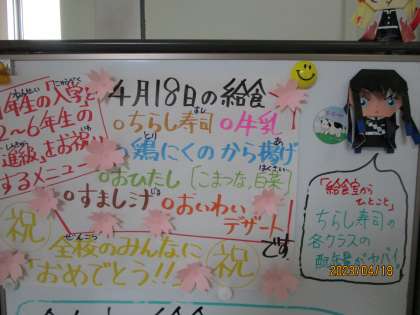 1年生の「入学」と
2〜6年生の
「進級」をお祝い
するメニュー
4月18日の給食
はし
ちらし寿司
牛乳
とり
鶏にくのから揚げ
はくさい
おひたし[こまつな,白菜]
じる
すまし汁
おいわい
デザート
です
祝
ぜんこう
全校のみんなに
「おめでとう!!」
祝
「給食室から
ひとこと」
ちらし寿司の
各クラスの
配年量がヤバイ!
2023/04/18